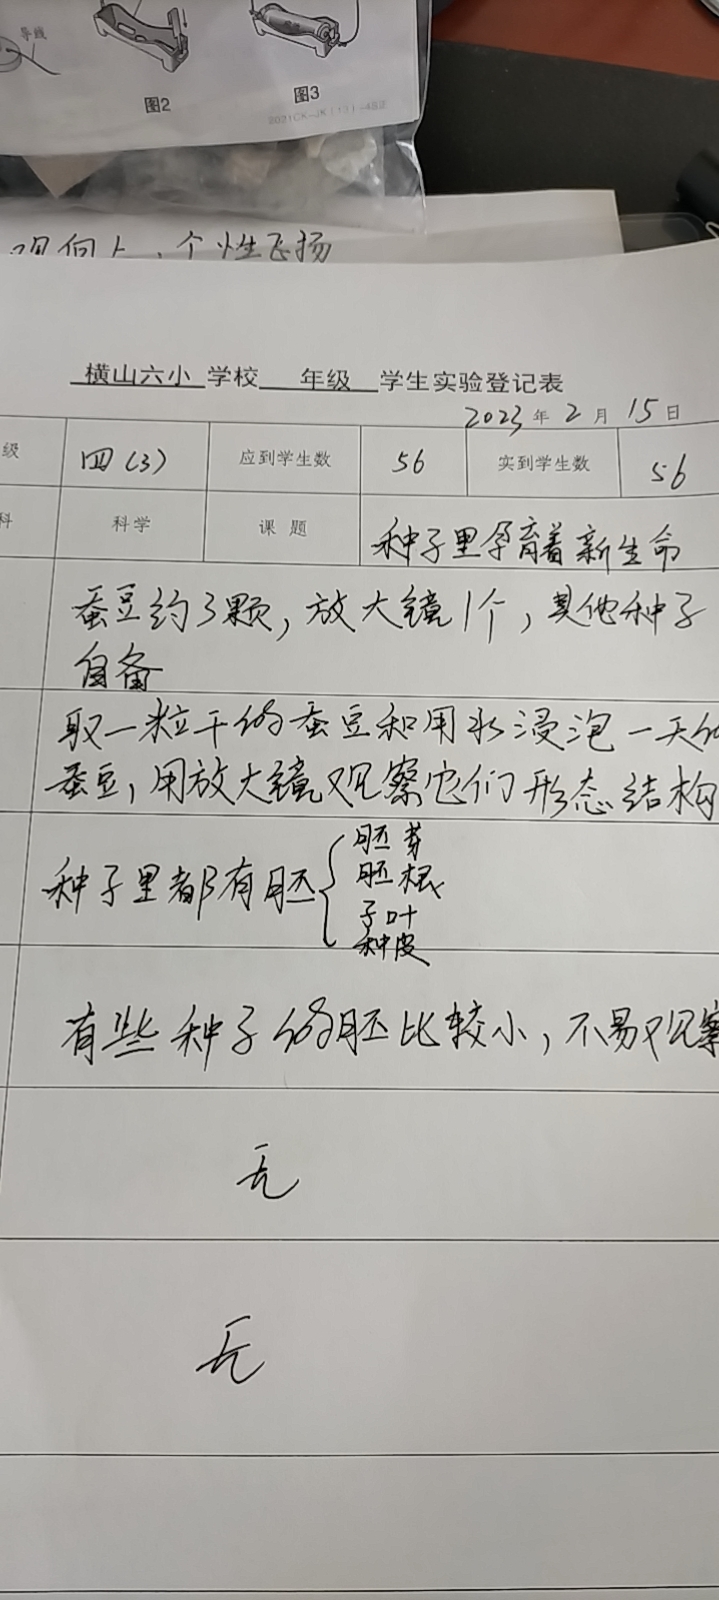 导线
图2
图3
个性飞扬
横山六小 学校 年级 学生实验登记表
2023 年 2 月 15 日
级 四(3) 应到学生数 56 实到学生数 56
科 科学 课 题 种子里孕育着新生命
蚕豆约3颗,放大镜1个,其他种子
自备
取一粒干的蚕豆和用水浸泡一天的
蚕豆,用放大镜观察它们形态结构
种子里都有胚{
胚芽
胚根
子叶
种皮
有些种子的胚比较小,不易观察
无
无